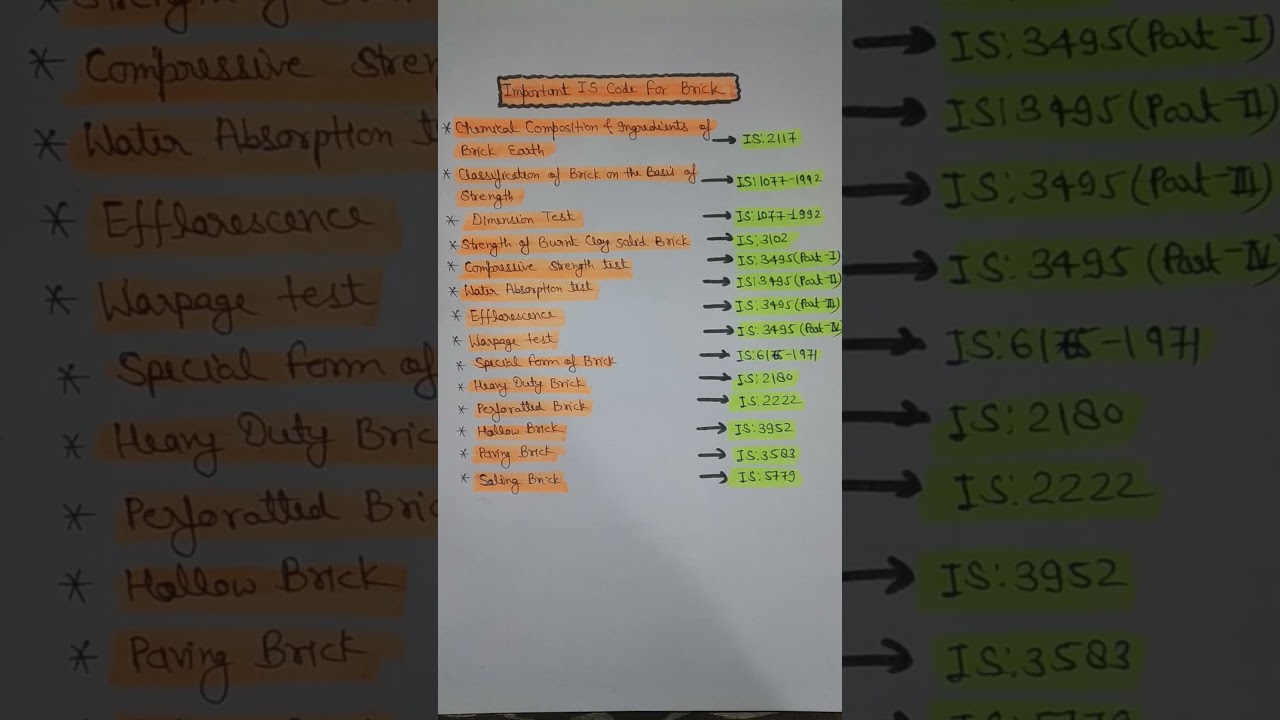 Important IS Code for Brick
* Chemical Composition & Ingredients of → IS:2117
Brick Earth
* Classification of Brick on the Basis of → IS:1077-1992
Strength
* Dimension Test → IS:1077-1992
* Strength of Burnt Clay solid Brick → IS:3102
* Compressive Strength test → IS:3495(Part-I)
* Water Absorption test → IS:3495(Part-II)
* Efflorescence → IS:3495(Part-III)
* Warpage test → IS:3495(Part-IV)
* Special form of Brick → IS:6165-1971
* Heavy Duty Brick → IS:2180
* Perforatted Brick → IS:2222
* Hollow Brick → IS:3952
* Paving Brick → IS:3583
* Saling Brick → IS:5779